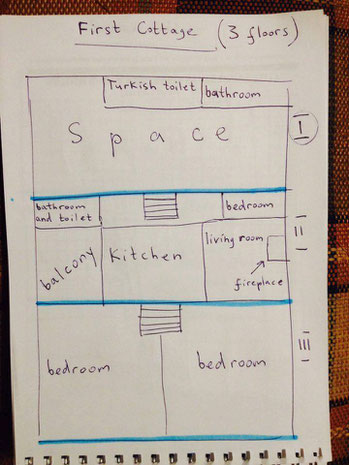 First Cottage (3 floors)
Turkish toilet bathroom
Space
I
bathroom
and toilet
bedroom
II
balcony
Kitchen
living room
fireplace
III
bedroom
bedroom